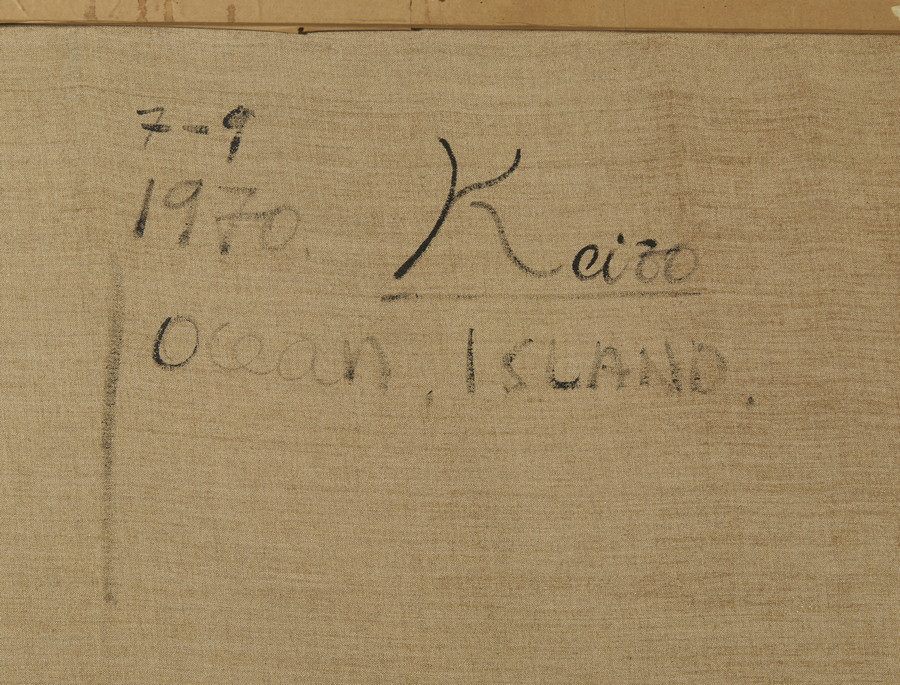 7-9
1970.
Keizo
Ocean, ISLAND.